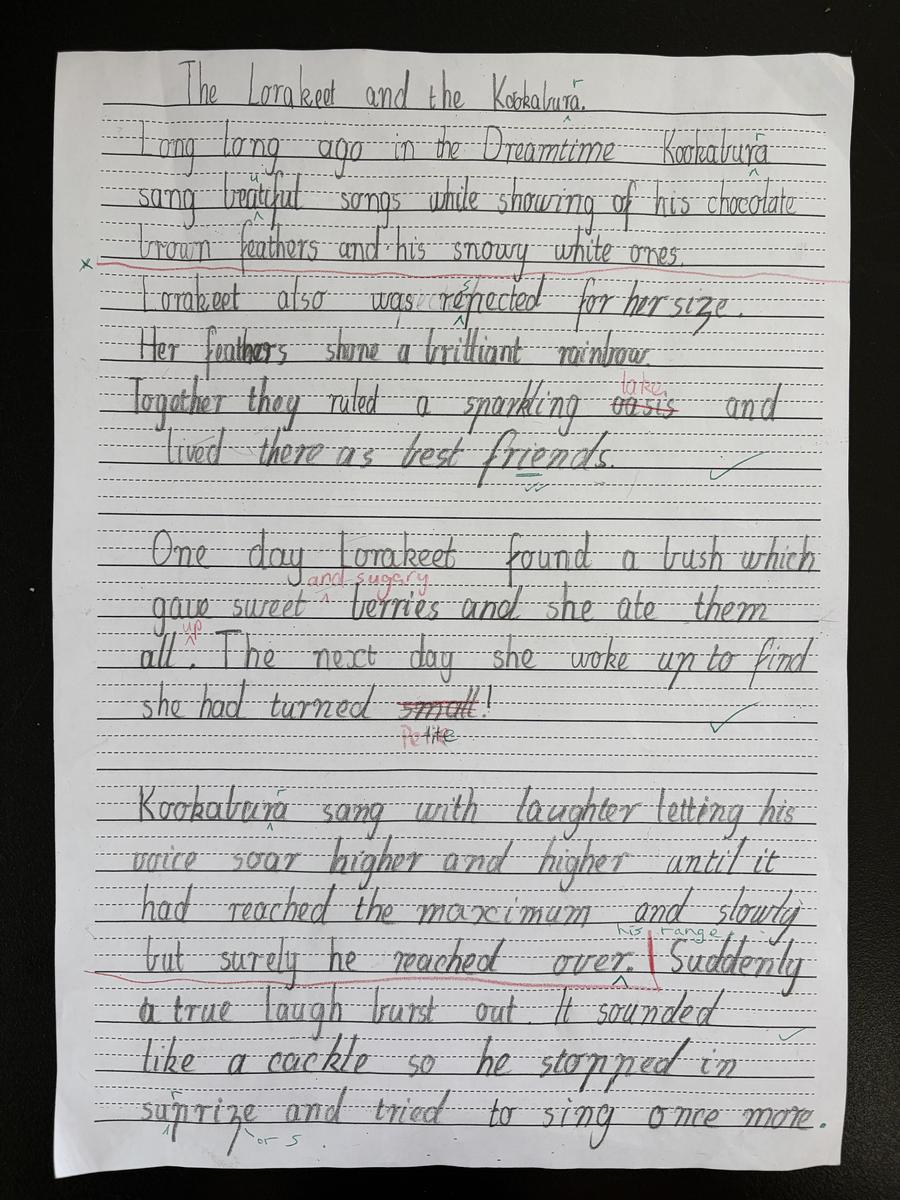 The Lorakeet and the Kookabura.
r
Long long ago in the Dreamtime Kookabura
r
sang beatiful songs while showing of his chocolate
u
brown feathers and his snowy white ones.
x
Lorakeet also was repected for her size.
s
Her feathers shone a brilliant rainbow.
lake
Together they ruled a sparkling oasis and
lived there as best friends.
One day Lorakeet found a bush which
and sugary
gave sweet berries and she ate them
up
all. The next day she woke up to find
she had turned small!
Petite
Kookabura sang with laughter letting his
r
voice soar higher and higher until it
had reached the maximum and slowly
his range
but surely he reached over. Suddenly
a true laugh burst out. It sounded
like a cackle so he stopped in
r
suprize and tried to sing once more.
or s.